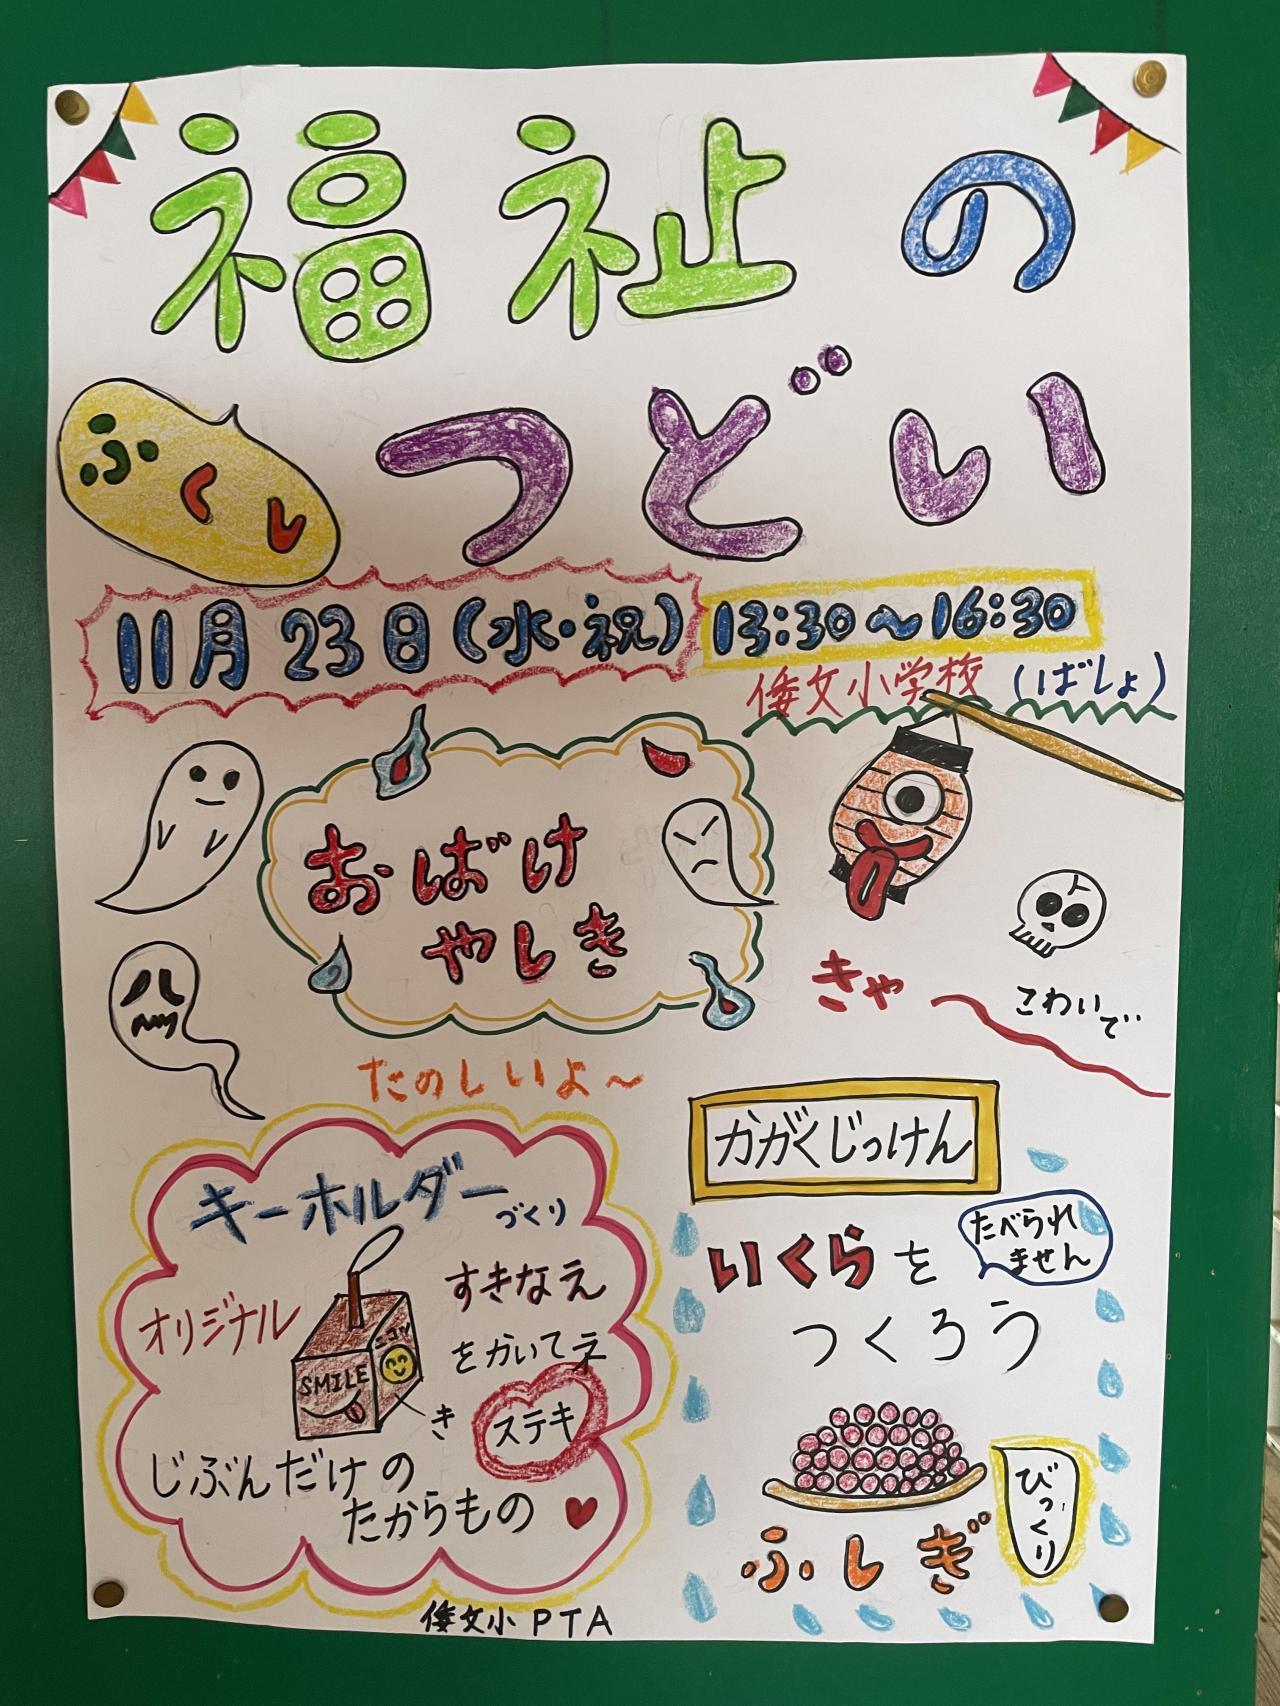 福祉の
ふくし
つどい
11月23日(水・祝) 13:30～16:30
倭文小学校 (ばしょ)
おばけ
やしき
きゃ～
こわいで
たのしいよ～
キーホルダーづくり
オリジナル
すきなえ
をかいてネ
SMILE
ニコッ
き
ステキ
じぶんだけの
たからもの
かがくじっけん
いくらを
たべられ
ません
つくろう
ふしぎ
びっくり
倭文小 PTA